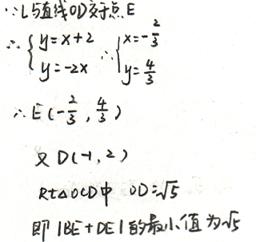 ∵L与直线OD交于点E
∴{y=x+2 y=-2x ∴{x=-2/3 y=4/3
∴E(-2/3, 4/3)
又D(-1,2)
Rt△OCD中 OD=√5
即|BE+DE|的最小值为√5